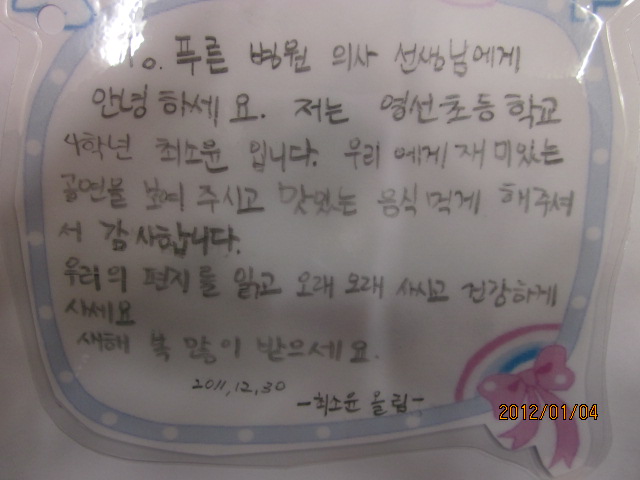 To. 푸른 병원 의사 선생님에게
안녕하세요. 저는 영선초등학교
4학년 최소윤 입니다. 우리에게 재미있는
공연을 보여 주시고 맛있는 음식 먹게 해주셔
서 감사합니다.
우리의 편지를 읽고 오래오래 사시고 건강하게
사세요
새해 복 많이 받으세요.
2011,12,30
-최소윤 올림-
2012/01/04